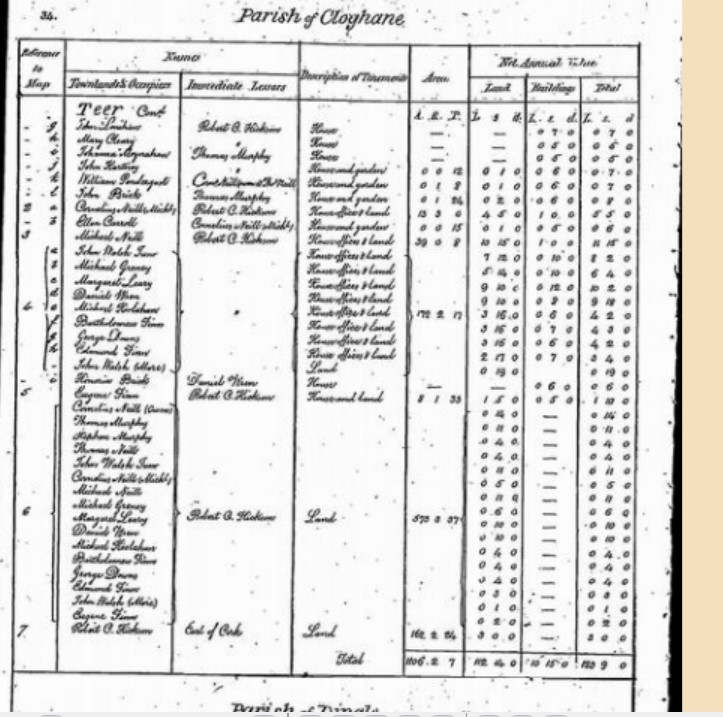 34.
Parish of Cloghane
Reference to Map
Names
Townlands & Occupiers
Immediate Lessors
Description of Tenement
Area
Net Annual Value
Land Buildings Total
Teer Cont
A. R. P. L s d. L. s. d. L s. d
g John Robert C. Hickson House — — 0 7 0 0 7 0
h Mary Cleary " House — — 0 5 0 0 5 0
i Johanna Moynahan Thomas Murphy House — — 0 5 0 0 5 0
j John " House and garden 0 0 12 0 1 0 0 6 0 0 7 0
k William House and garden 0 1 8 0 1 0 0 6 0 0 7 0
l John Brick Thomas Murphy House and garden 0 1 24 0 2 0 0 6 0 0 8 0
2 a Cornelius Neill (Michl) Robert C. Hickson House office & land 13 3 0 4 5 0 1 0 0 5 5 0
Ellen Carroll Cornelius Neill (Michl) House and garden 0 0 15 0 1 0 0 5 0 0 6 0
3 Michael Neill Robert C. Hickson House offices & land 39 0 8 10 15 0 1 0 0 11 15 0
a John Walsh Junr House offices & land 7 12 0 0 10 0 8 2 0
b Michael Greney House offices & land 5 14 0 0 10 0 6 4 0
c Margaret Leary House offices & land 9 10 0 0 12 0 10 2 0
d Daniel Wren House offices & land 9 10 0 0 8 0 9 18 0
4 e Michael " House office & land 172 2 17 3 16 0 0 6 0 4 2 0
f Bartholomew Finn House offices & land 3 16 0 0 7 0 4 3 0
g George Downs House office & land 3 16 0 0 6 0 4 2 0
h Edmund Finn House offices & land 2 17 0 0 7 0 3 4 0
John Walsh (More) Land 0 19 0 — 0 19 0
Brick Daniel Wren House — — 0 6 0 0 6 0
5 Eugene Finn Robert C. Hickson House and land 8 1 33 1 5 0 0 5 0 1 10 0
Cornelius Neill 0 14 0 — 0 14 0
Thomas Murphy 0 11 0 — 0 11 0
Stephen Murphy 0 4 0 — 0 4 0
Thomas Neill 0 4 0 — 0 4 0
John Walsh Junr 0 11 0 — 0 11 0
Cornelius Neill (Michl) 0 5 0 — 0 5 0
Michael Neill 0 11 0 — 0 11 0
Michael Greney 0 6 0 — 0 6 0
6 Margaret Leary Robert C. Hickson Land 573 3 37 0 10 0 — 0 10 0
Daniel Wren 0 10 0 — 0 10 0
Michael 0 4 0 — 0 4 0
Bartholomew Finn 0 4 0 — 0 4 0
George Downs 0 4 0 — 0 4 0
Edmund Finn 0 3 0 — 0 3 0
John Walsh (More) 0 1 0 — 0 1 0
Eugene Finn 0 2 0 — 0 2 0
7 Robert C. Hickson Earl of Cork Land 162 2 24 3 0 0 — 3 0 0
Total 1106 2 7 112 14 0 10 15 0 123 9 0
Parish of Dingle